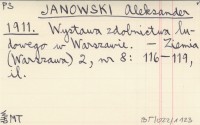 PS
JANOWSKI Aleksander
1911. Wystawa zdobnictwa lu-
dowego w Warszawie. – Ziemia
(Warszawa) 2, nr 8: 116–119,
il.
MT